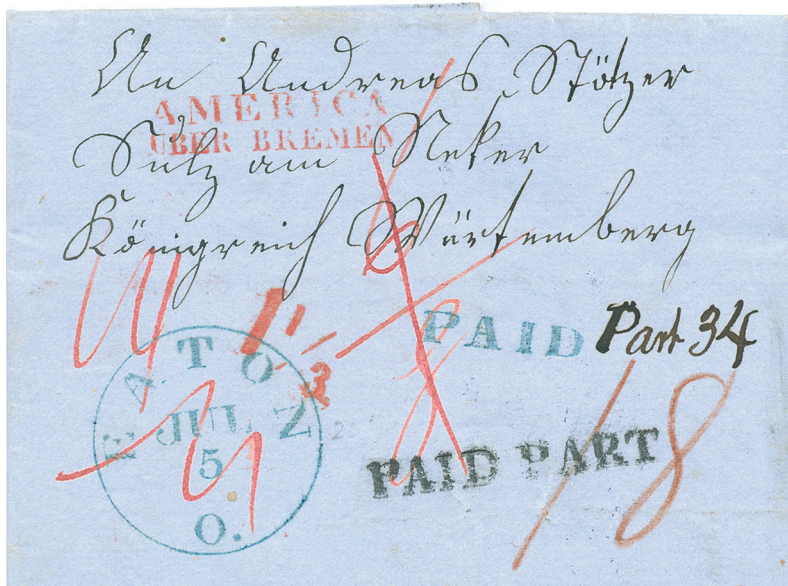 An Andreas Stötzer
AMERICA
ÜBER BREMEN
Sulz am Neker
Königreich Würtemberg
PAID Part 34
1 1/3
EATON
JUL
5
O.
PAID PART
18